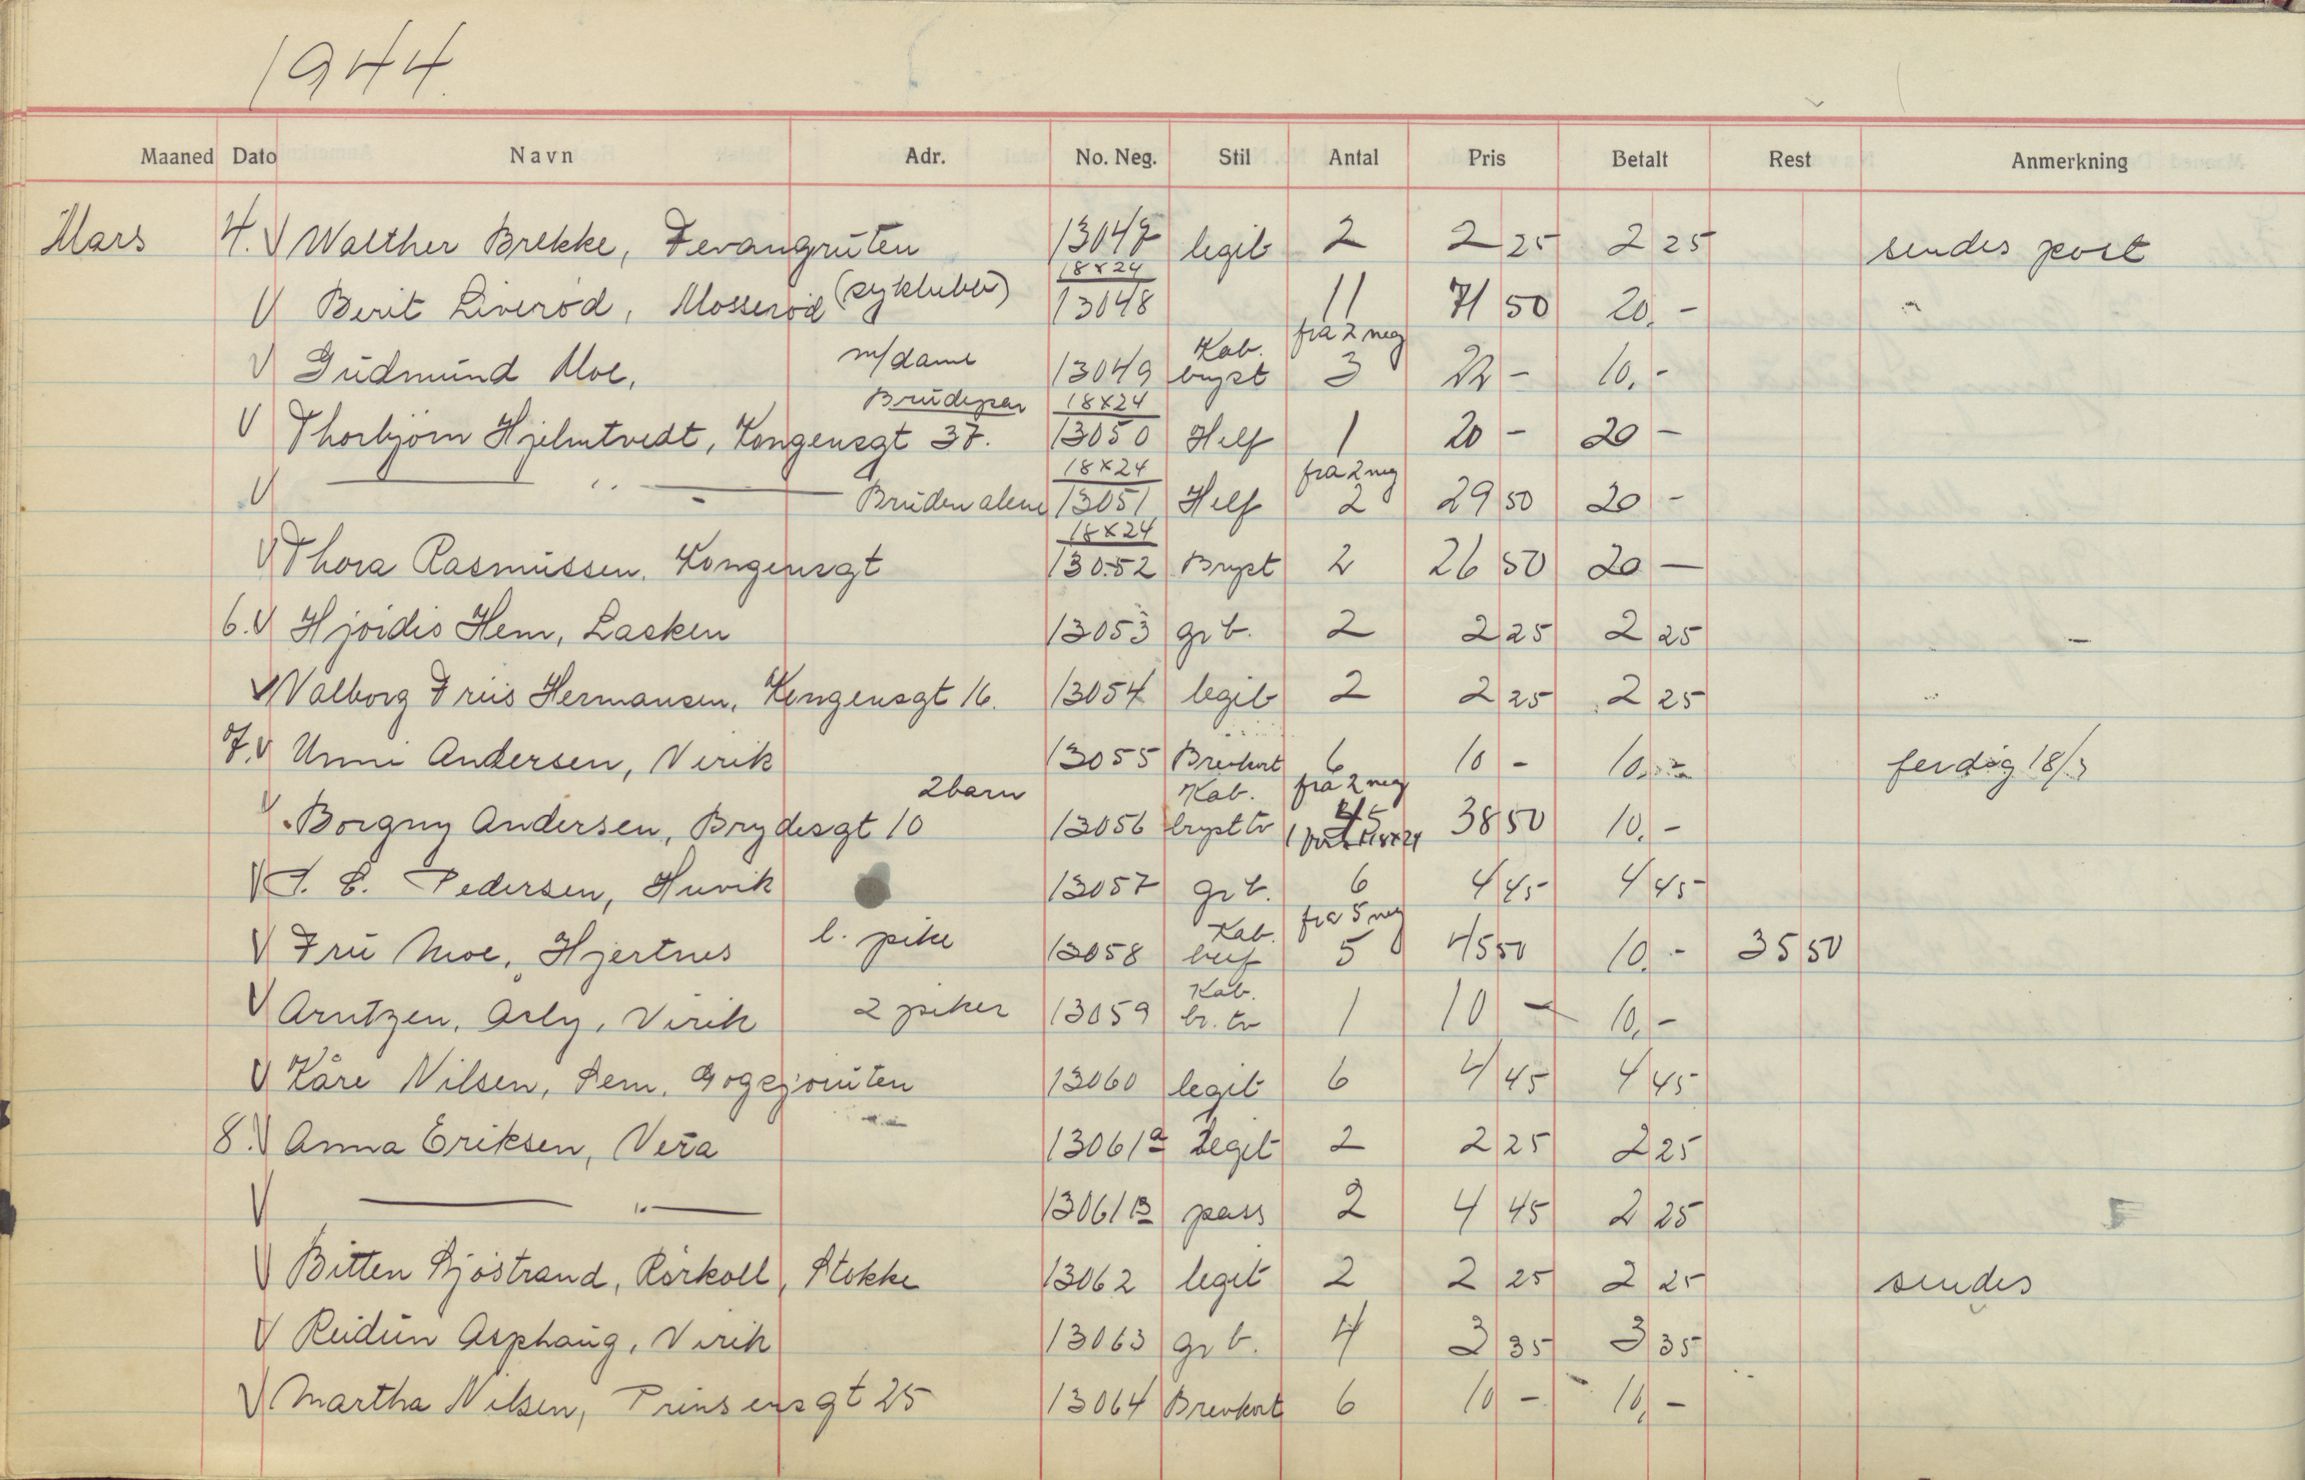 1944
Maaned Dato Navn Adr. No. Neg. Stil Antal Pris Betalt Rest Anmerkning
Mars 4. V Walther Brekke, Fevangruten 13047 legit 2 2 25 2 25 sendes post
18x24
V Berit Liverød, Mosserød (syklubb) 13048 11 71 50 20. -
m/dame Kab. fra 2 neg
V Gudmund Moe, 13049 bryst 3 22 - 10.-
Brudepar 18x24
V Thorbjørn Hjelmtvedt, Kongensgt 37. 13050 Helf 1 20 - 20 -
18x24 fra 2 neg
V — " — Bruden alene 13051 Helf 2 29 50 20 -
18x24
V Thora Rasmussen, Kongensgt 13052 Bryst 2 26 50 20 —
6. V Hjørdis Hem, Lasken 13053 gr b. 2 2 25 2 25
V Valborg Friis Hermansen, Kongensgt 16. 13054 legit 2 2 25 2 25
7. V Unni Andersen, Virik 13055 Brevkort 6 10 - 10.- ferdig 18/3
2 barn Kab. fra 2 neg
V Borgny Andersen, Brydesgt 10 13056 bryst tv 38 50 10. -
V Pedersen, Huvik 13057 gr b. 6 4 45 4 45
l. pike Kab. fra 5 neg
V Fru Moe, Hjertnes 13058 5 45 50 10. - 35 50
Kab.
V Arntzen, Arly, Virik 2 piker 13059 br. tv 1 10 - 10. -
V Kåre Nilsen, Sem, Gogsjøruten 13060 legit 6 4 45 4 45
8. V Anna Eriksen, Vera 13061 a Legit 2 2 25 2 25
V — " — 13061 B pass 2 4 45 2 25
V Bitten Sjøstrand, Rørkoll, Stokke 13062 legit 2 2 25 2 25 sendes
V Reidun Asphaug, Virik 13063 gr b. 4 3 35 3 35
V Martha Nilsen, Prinsensgt 25 13064 Brevkort 6 10 - 10, -